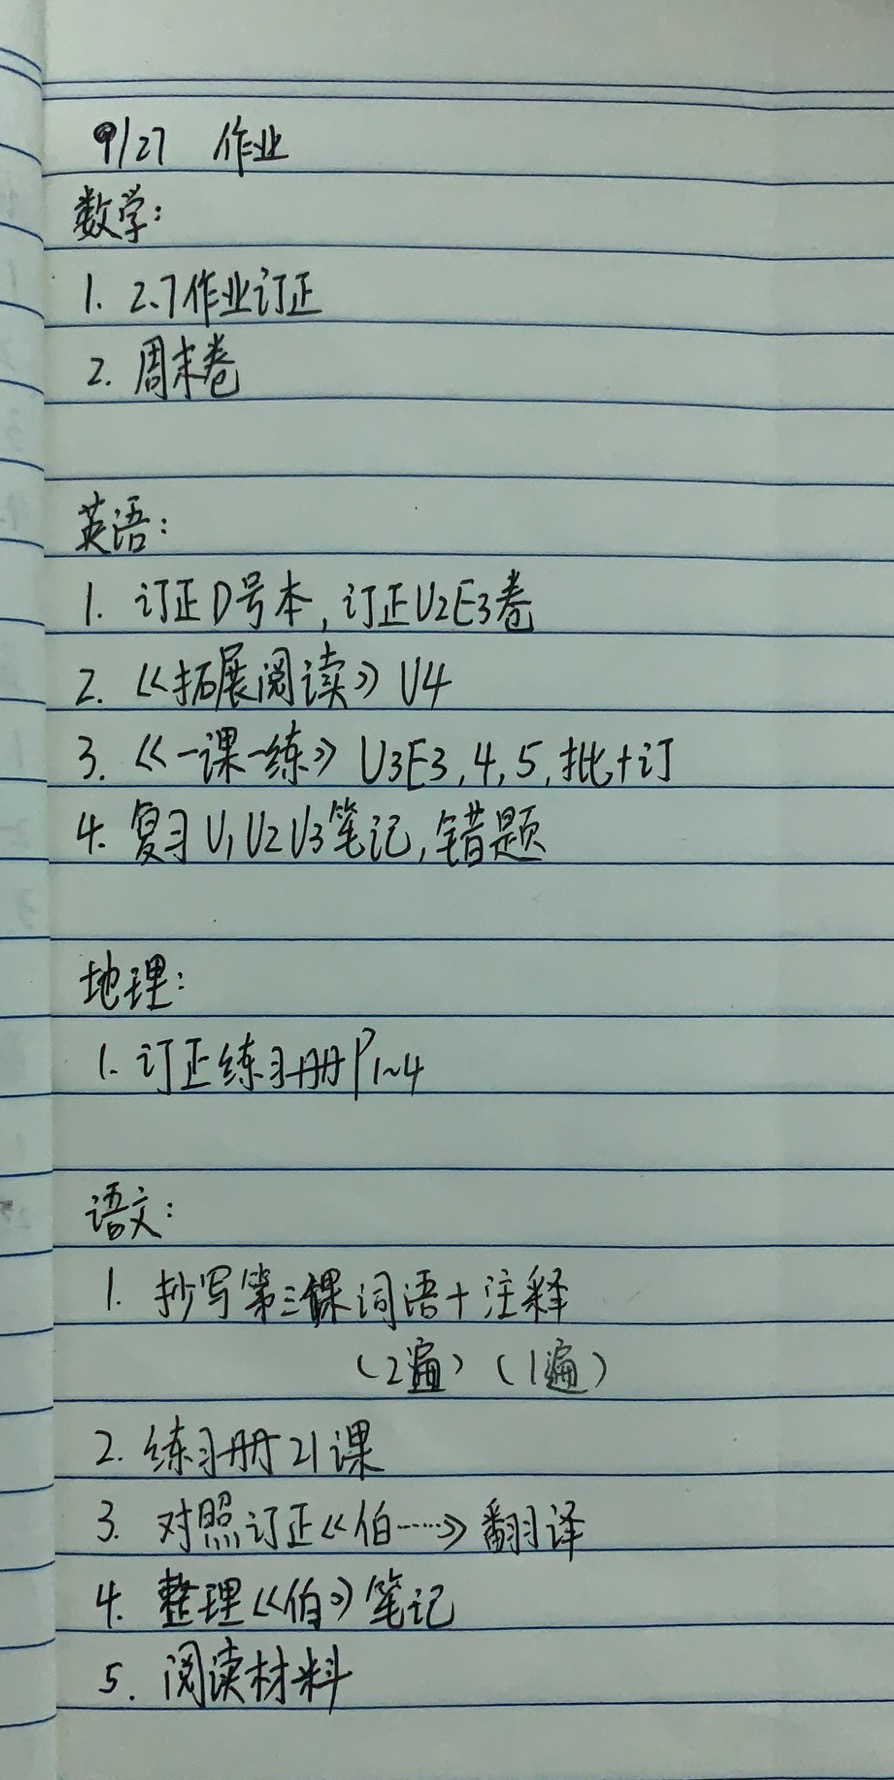 9/27 作业
数学:
1. 2.7作业订正
2. 周末卷
英语:
1. 订正D号本,订正U2E3卷
2.《拓展阅读》U4
3.《一课一练》U3E3,4,5,批+订
4. 复习U1U2U3笔记,错题
地理:
1. 订正练习册P1~4
语文:
1. 抄写第三课词语+注释
(2遍)(1遍)
2. 练习册21课
3. 对照订正《伯……》翻译
4. 整理《伯》笔记
5. 阅读材料